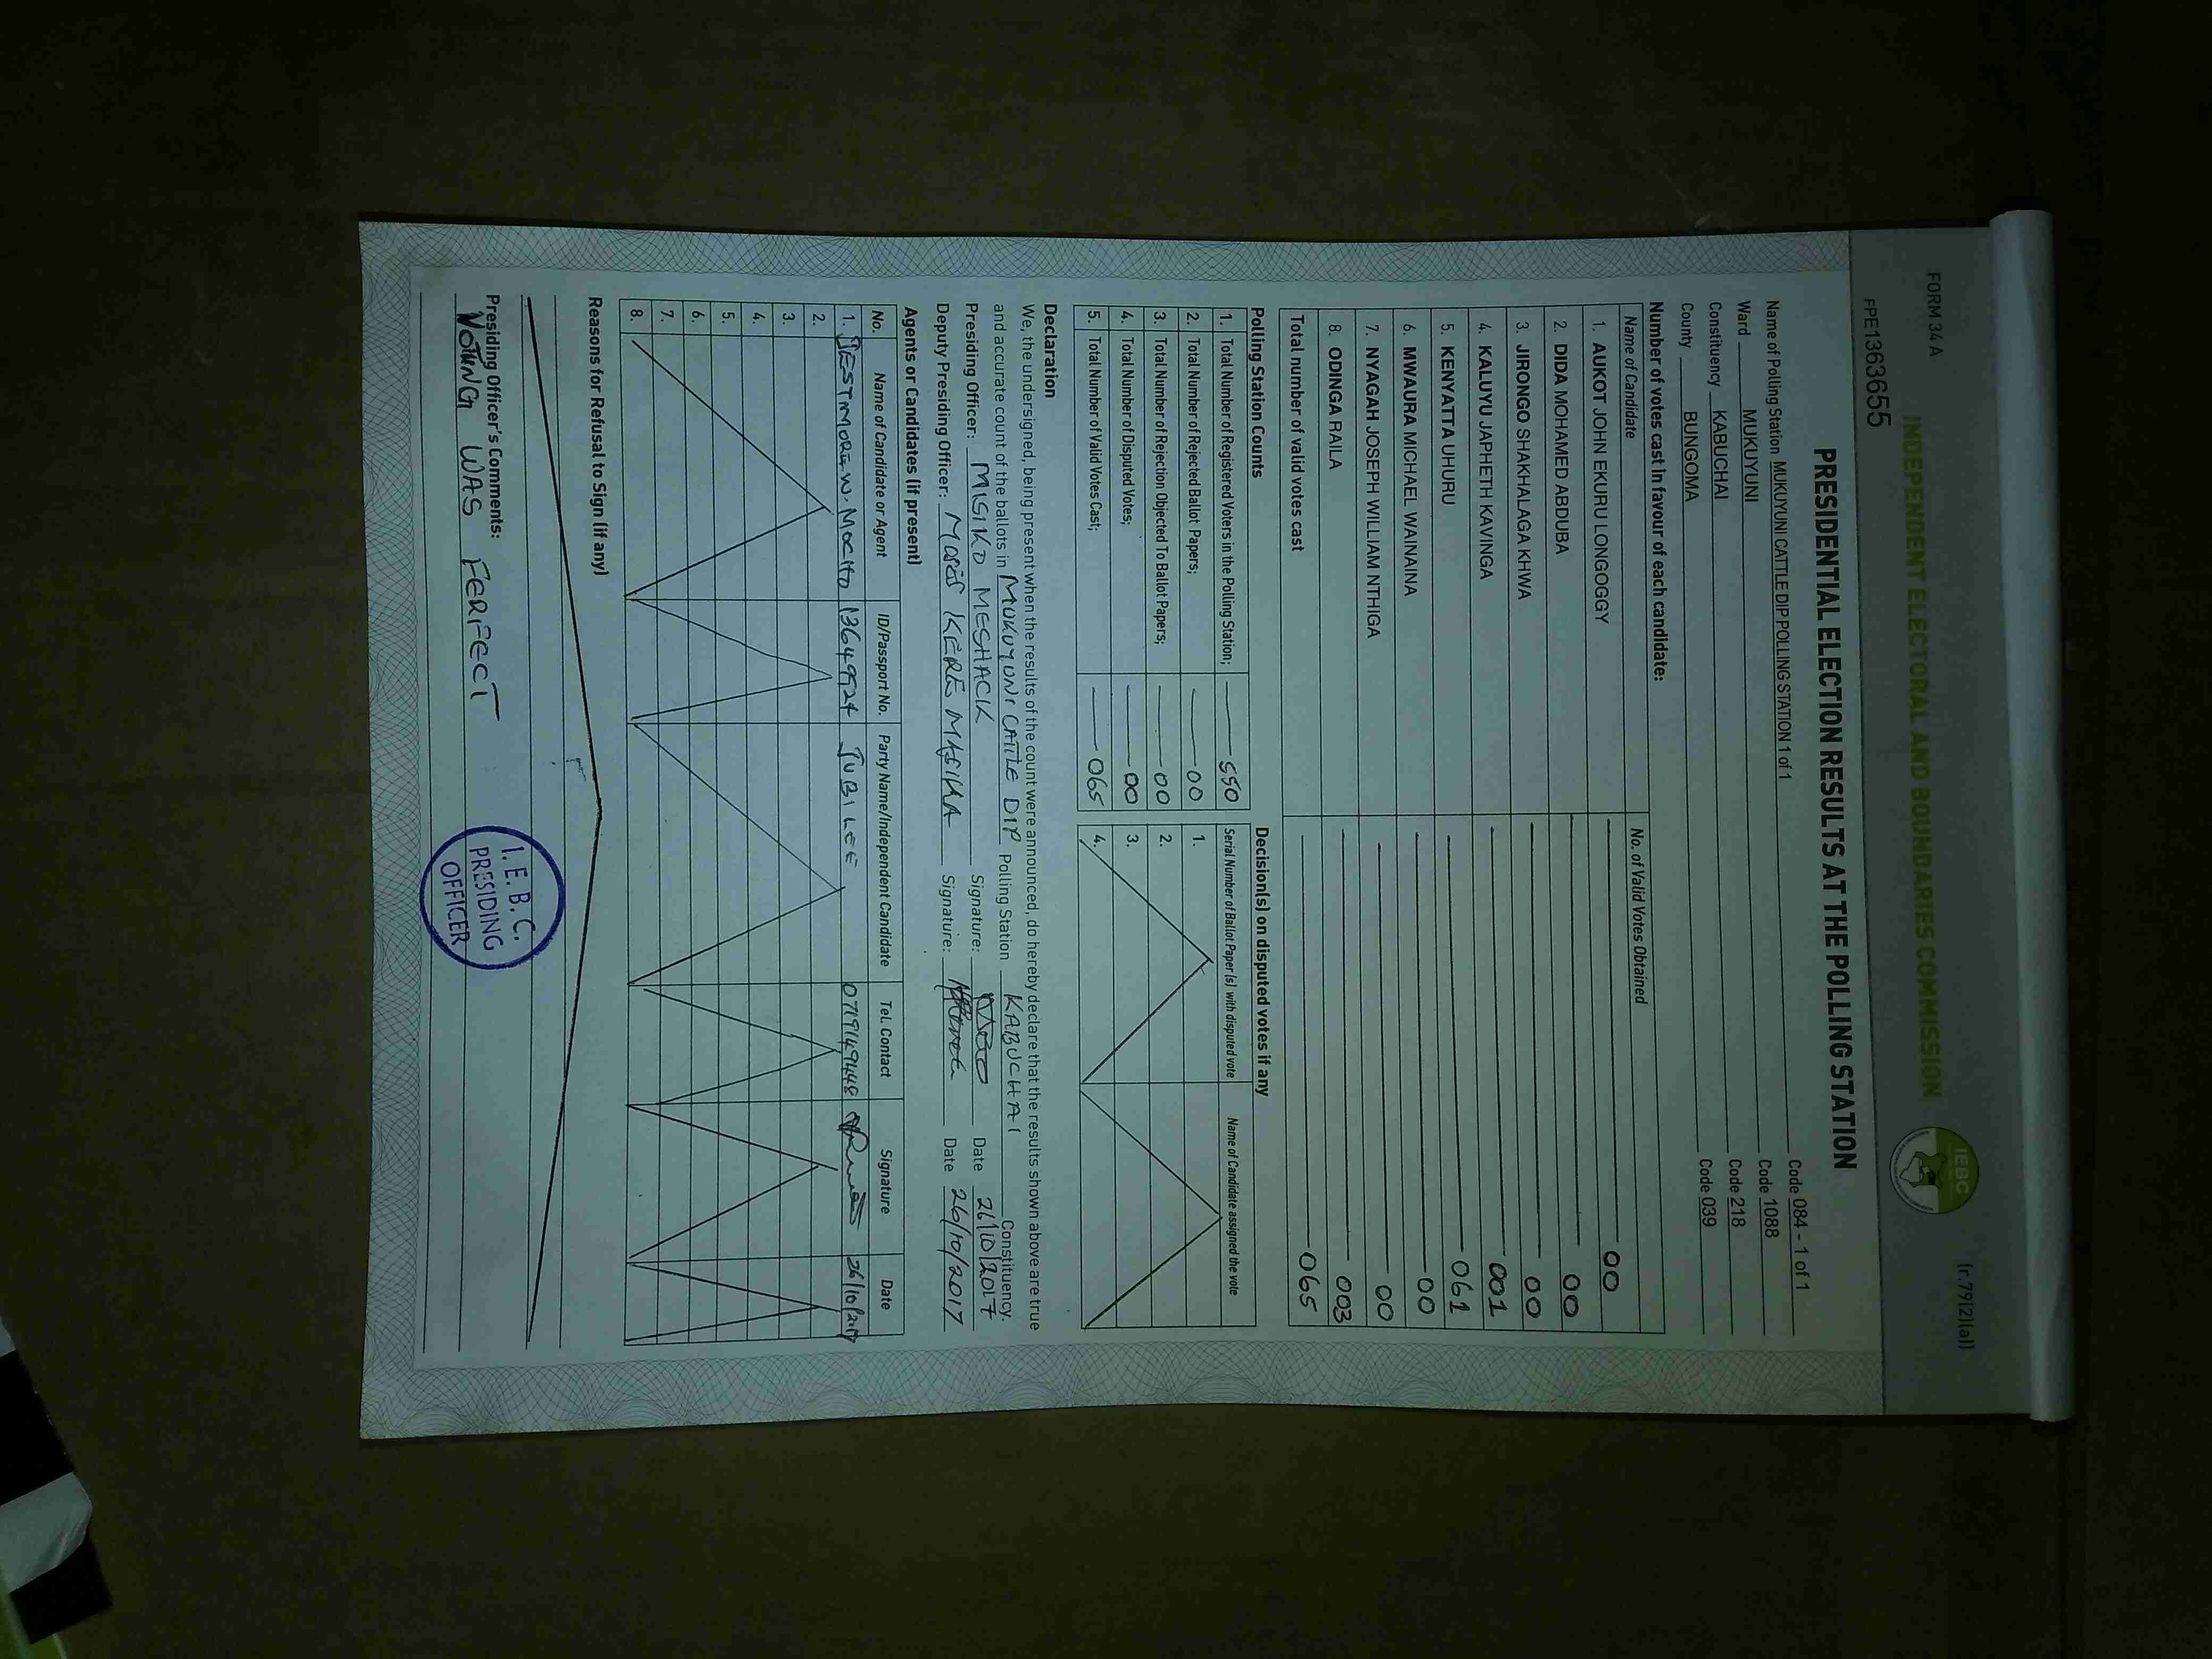 FORM 34 A
(r.79(2)(a))
INDEPENDENT ELECTORAL AND BOUNDARIES COMMISSION
IEBC
FPE1363655
PRESIDENTIAL ELECTION RESULTS AT THE POLLING STATION
Name of Polling Station MUKUYUNI CATTLE DIP POLLING STATION 1 of 1 Code 084 - 1 of 1
Ward MUKUYUNI Code 1088
Constituency KABUCHAI Code 218
County BUNGOMA Code 039
Number of votes cast in favour of each candidate:
Name of Candidate No. of Valid Votes Obtained
1. AUKOT JOHN EKURU LONGOGGY 00
2. DIDA MOHAMED ABDUBA 00
3. JIRONGO SHAKHALAGA KHWA 00
4. KALUYU JAPHETH KAVINGA 001
5. KENYATTA UHURU 061
6. MWAURA MICHAEL WAINAINA 00
7. NYAGAH JOSEPH WILLIAM NTHIGA 00
8. ODINGA RAILA 003
Total number of valid votes cast 065
Polling Station Counts
1. Total Number of Registered Voters in the Polling Station; 550
2. Total Number of Rejected Ballot Papers; 00
3. Total Number of Rejection Objected To Ballot Papers; 00
4. Total Number of Disputed Votes; 00
5. Total Number of Valid Votes Cast; 065
Decision(s) on disputed votes if any
Serial Number of Ballot Paper(s) with disputed vote Name of Candidate assigned the vote
1.
2.
3.
4.
Declaration
We, the undersigned, being present when the results of the count were announced, do hereby declare that the results shown above are true
and accurate count of the ballots in MUKUYUNI CATTLE DIP Polling Station KABUCHAI Constituency.
Presiding Officer: MISIKO MESHACK Signature: Date 26/10/2017
Deputy Presiding Officer: MOSES KERE Signature: Date 26/10/2017
Agents or Candidates (if present)
No. Name of Candidate or Agent ID/Passport No. Party Name/Independent Candidate Tel. Contact Signature Date
1. JUBILEE 26/10/2017
2.
3.
4.
5.
6.
7.
8.
Reasons for Refusal to Sign (if any)
Presiding Officer's Comments:
VOTING WAS PERFECT
I. E. B. C.
PRESIDING
OFFICER